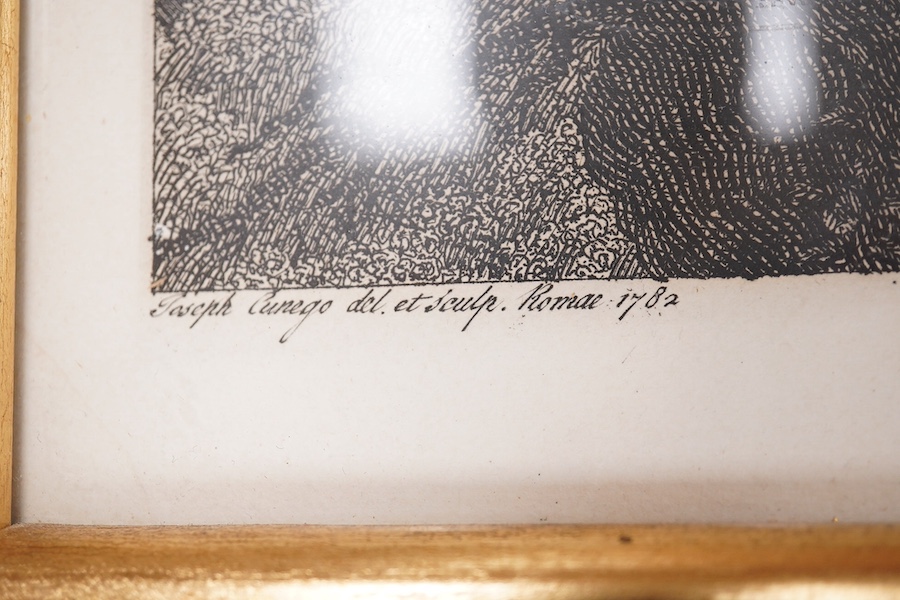 Joseph Cunego del. et sculp. Romae 1782